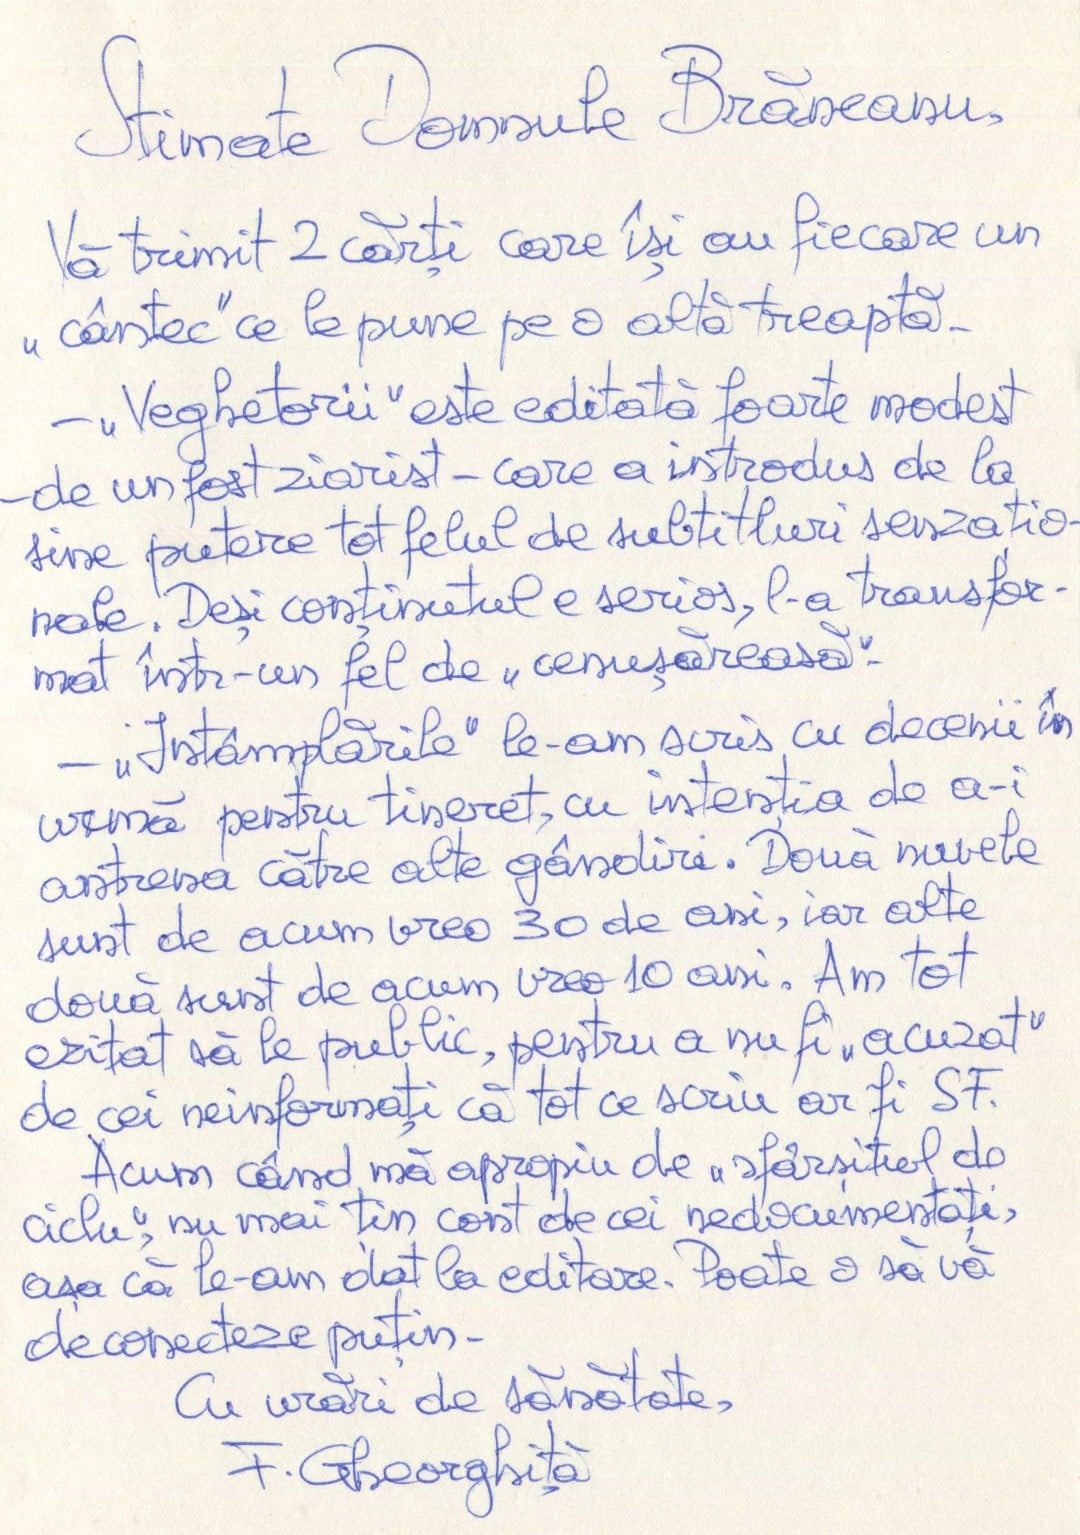 Stimate Domnule Brăneanu,
Vă trimit 2 cărți care își au fiecare un
„cântec" ce le pune pe o altă treaptă -
- „Veghetorii" este editată foarte modest
- de un fost ziarist - care a introdus de la
sine putere tot felul de subtitluri senzațio-
nale. Deși conținutul e serios, l-a transfor-
mat într-un fel de „cenușăreasă".
- „Întâmplările" le-am scris cu decenii în
urmă pentru tineret, cu intenția de a-i
antrena către alte gândiri. Două nuvele
sunt de acum vreo 30 de ani, iar alte
două sunt de acum vreo 10 ani. Am tot
ezitat să le public, pentru a nu fi „acuzat"
de cei neinformați că tot ce scriu ar fi SF.
Acum când mă apropiu de „sfârșitul de
ciclu", nu mai țin cont de cei nedocumentați,
așa că le-am dat la editare. Poate o să vă
deconecteze puțin -
Cu urări de sănătate,
F. Gheorghiță